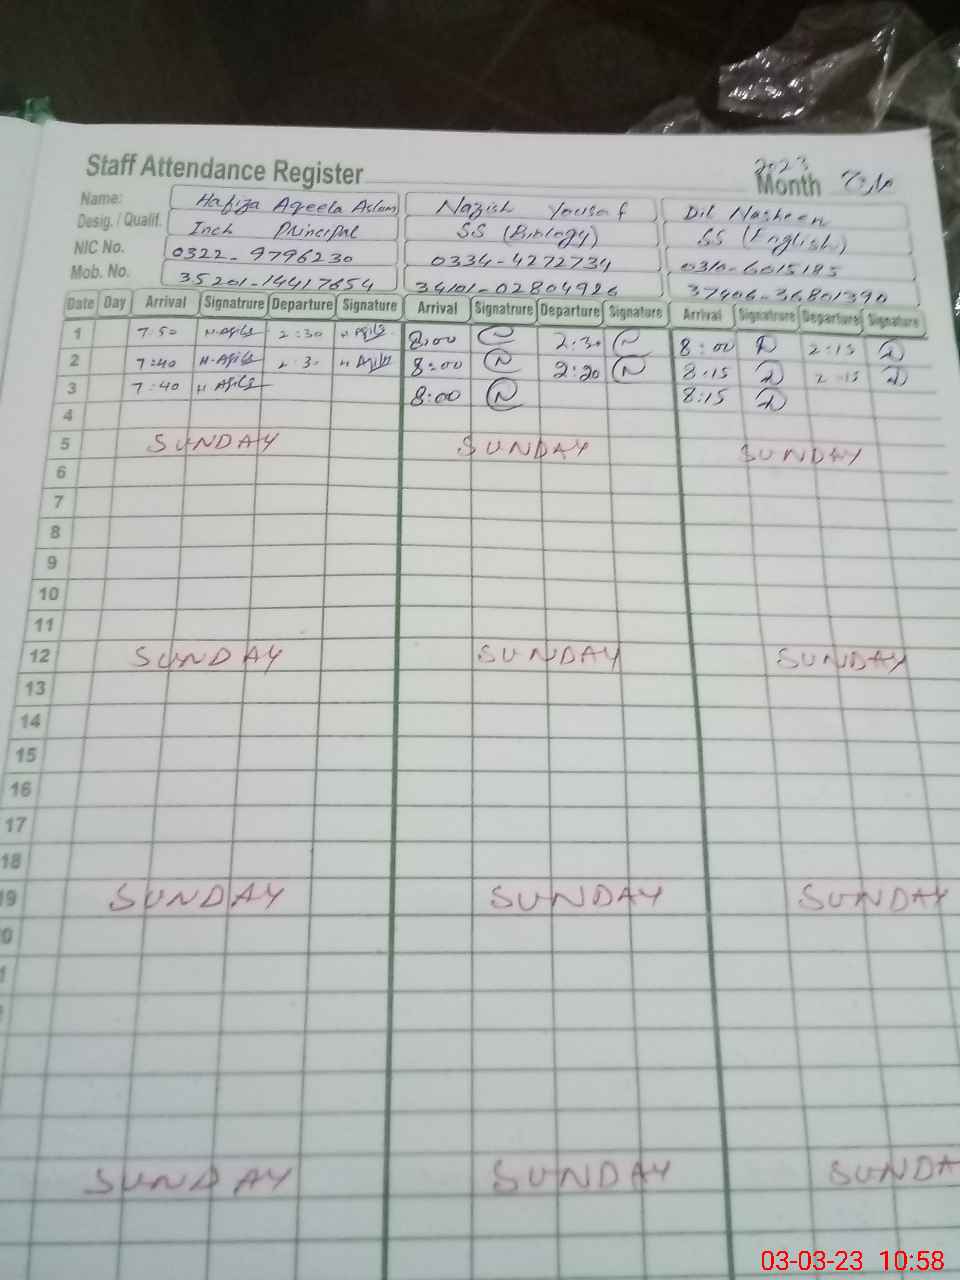 Staff Attendance Register
2023
Month مارچ
Name: Hafiza Aqeela Aslam Nazish Yousaf Dil Nasheen
Desig. / Qualif. Inch Principal SS (Biology) SS (English)
NIC No. 0322-9796230 0334-4272734 0310-6015185
Mob. No. 35201-14417654 34101-02804926 37406-36801390
Date Day Arrival Signatrure Departure Signature Arrival Signatrure Departure Signature Arrival Signatrure Departure Signature
1 7:50 2:30 8:00 N 2:30 N 8:00 2:15
2 7:40 2:3 8:00 N 2:20 N 8:15 2:15
3 7:40 8:00 N 8:15
4
5 SUNDAY SUNDAY SUNDAY
6
7
8
9
10
11
12 SUNDAY SUNDAY SUNDAY
13
14
15
16
17
18
19 SUNDAY SUNDAY SUNDAY
0
SUNDAY SUNDAY SUNDA
03-03-23 10:58